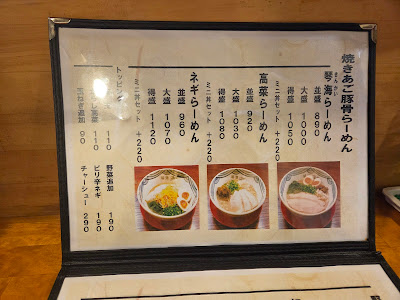 焼きあご豚骨らーめん
琴海らーめん
並盛 890
大盛 1000
得盛 1050
ミニ丼セット +220
高菜らーめん
並盛 920
大盛 1030
得盛 1080
ミニ丼セット +220
ネギらーめん
並盛 960
大盛 1070
得盛 1120
ミニ丼セット +220
トッピング
110
110
玉ねぎ追加 90
野菜追加 190
ピリ辛ネギ 190
チャーシュー 290